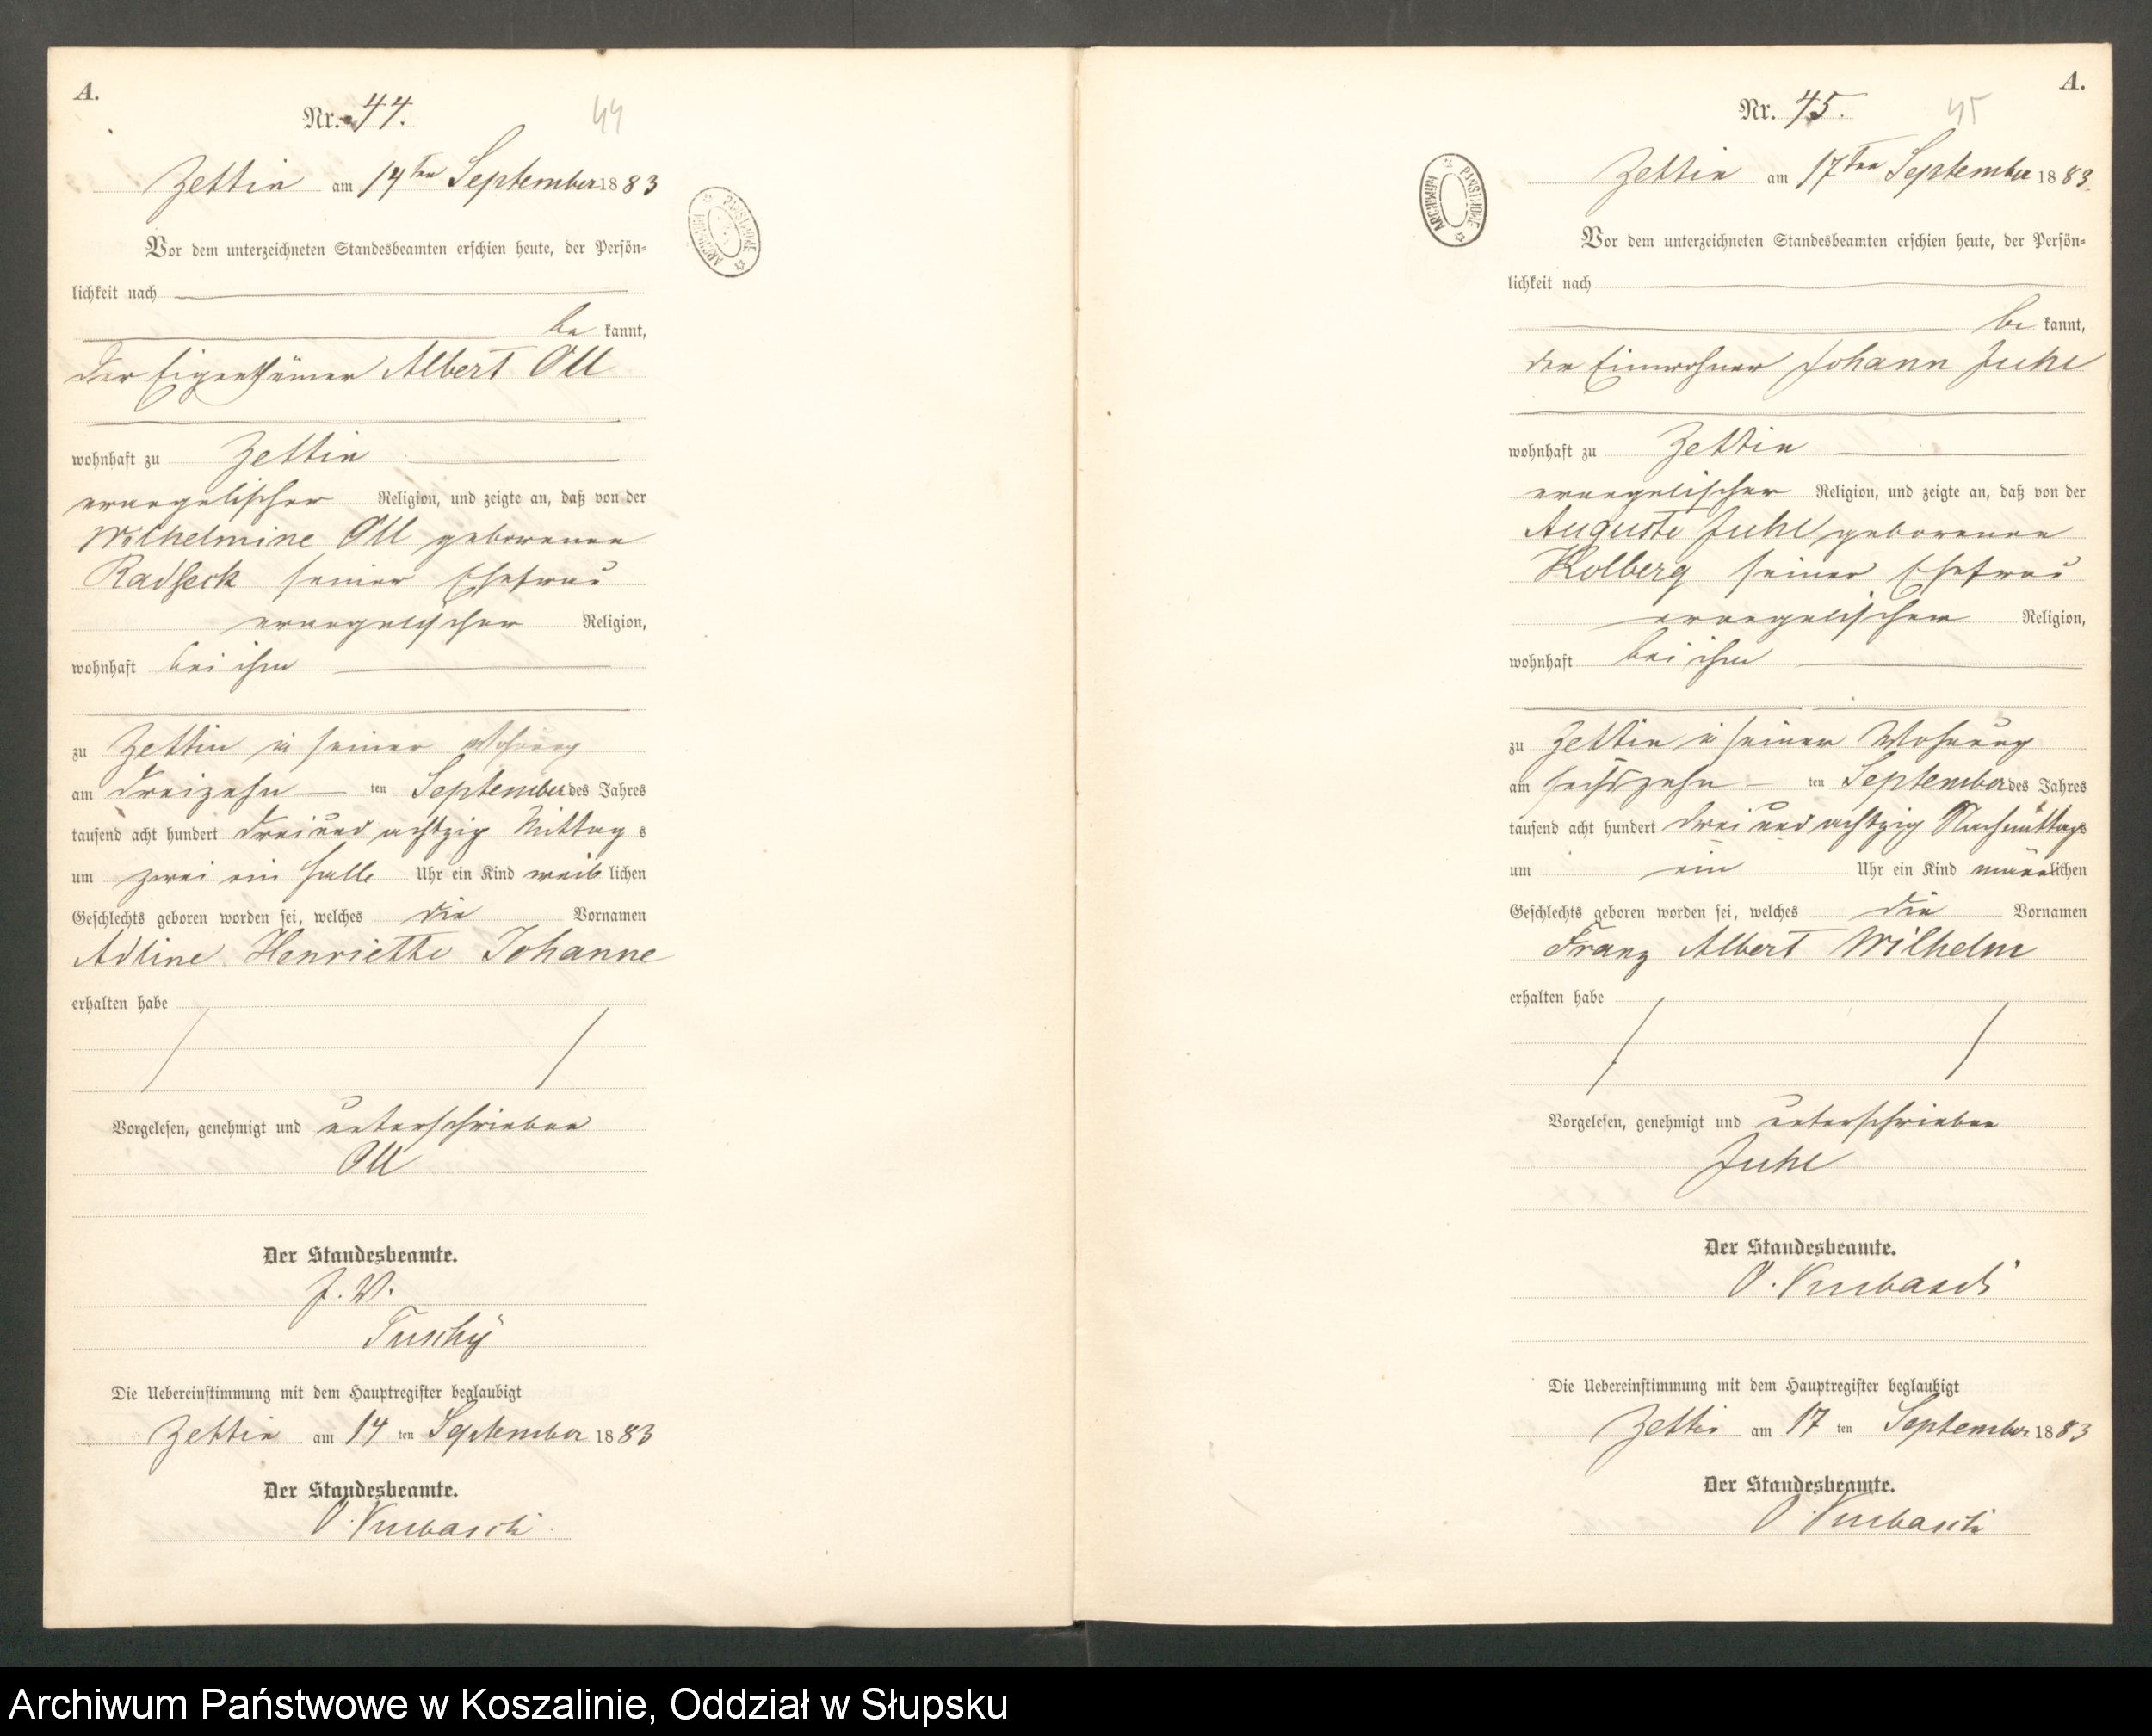 A.
Nr. 44.
44
Zettin am 14ten September 1883
Vor dem unterzeichneten Standesbeamten erschien heute, der Persön-
lichkeit nach
be kannt,
der Eigenthümer Albert Oll
wohnhaft zu Zettin
evangelischer Religion, und zeigte an, daß von der
Wilhelmine Oll geborenen
seiner Ehefrau
evangelischer Religion,
wohnhaft bei ihm
zu Zettin in seiner Wohnung
am dreizehn ten September des Jahres
tausend acht hundert drei und achtzig Mittag s
um zwei ein halb Uhr ein Kind weib lichen
Geschlechts geboren worden sei, welches die Vornamen
Adline Henriette Johanne
erhalten habe
Vorgelesen, genehmigt und unterschrieben
Oll
Der Standesbeamte.
J. V.
Die Uebereinstimmung mit dem Hauptregister beglaubigt
Zettin am 14 ten September 1883
Der Standesbeamte.
ARCHIWUM PAŃSTWOWE
A.
Nr. 45.
45
Zettin am 17ten September 1883
Vor dem unterzeichneten Standesbeamten erschien heute, der Persön-
lichkeit nach
be kannt,
der Einwohner Johann Juhl
wohnhaft zu Zettin
evangelischer Religion, und zeigte an, daß von der
Auguste Juhl geborenen
Kolberg seiner Ehefrau
evangelischer Religion,
wohnhaft bei ihm
zu Zettin in seiner Wohnung
am sechszehn ten September des Jahres
tausend acht hundert drei und achtzig Nachmittags
um ein Uhr ein Kind männlichen
Geschlechts geboren worden sei, welches die Vornamen
Franz Albert Wilhelm
erhalten habe
Vorgelesen, genehmigt und unterschrieben
Juhl
Der Standesbeamte.
Die Uebereinstimmung mit dem Hauptregister beglaubigt
Zettin am 17 ten September 1883
Der Standesbeamte.
ARCHIWUM PAŃSTWOWE
Archiwum Państwowe w Koszalinie, Oddział w Słupsku